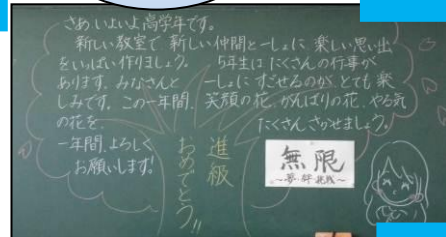 さあ いよいよ高学年です。
新しい教室で 新しい仲間と一しょに 楽しい思い出
をいっぱい作りましょう。 5年生は たくさんの行事が
あります。みなさんと 一しょに すごせるのが、とても楽
しみです。この一年間、笑顔の花、がんばりの花、やる気
の花を たくさん さかせましょう。
一年間、よろしく
お願いします!
進級
おめでとう!!
無限
～夢・絆・挑戦～